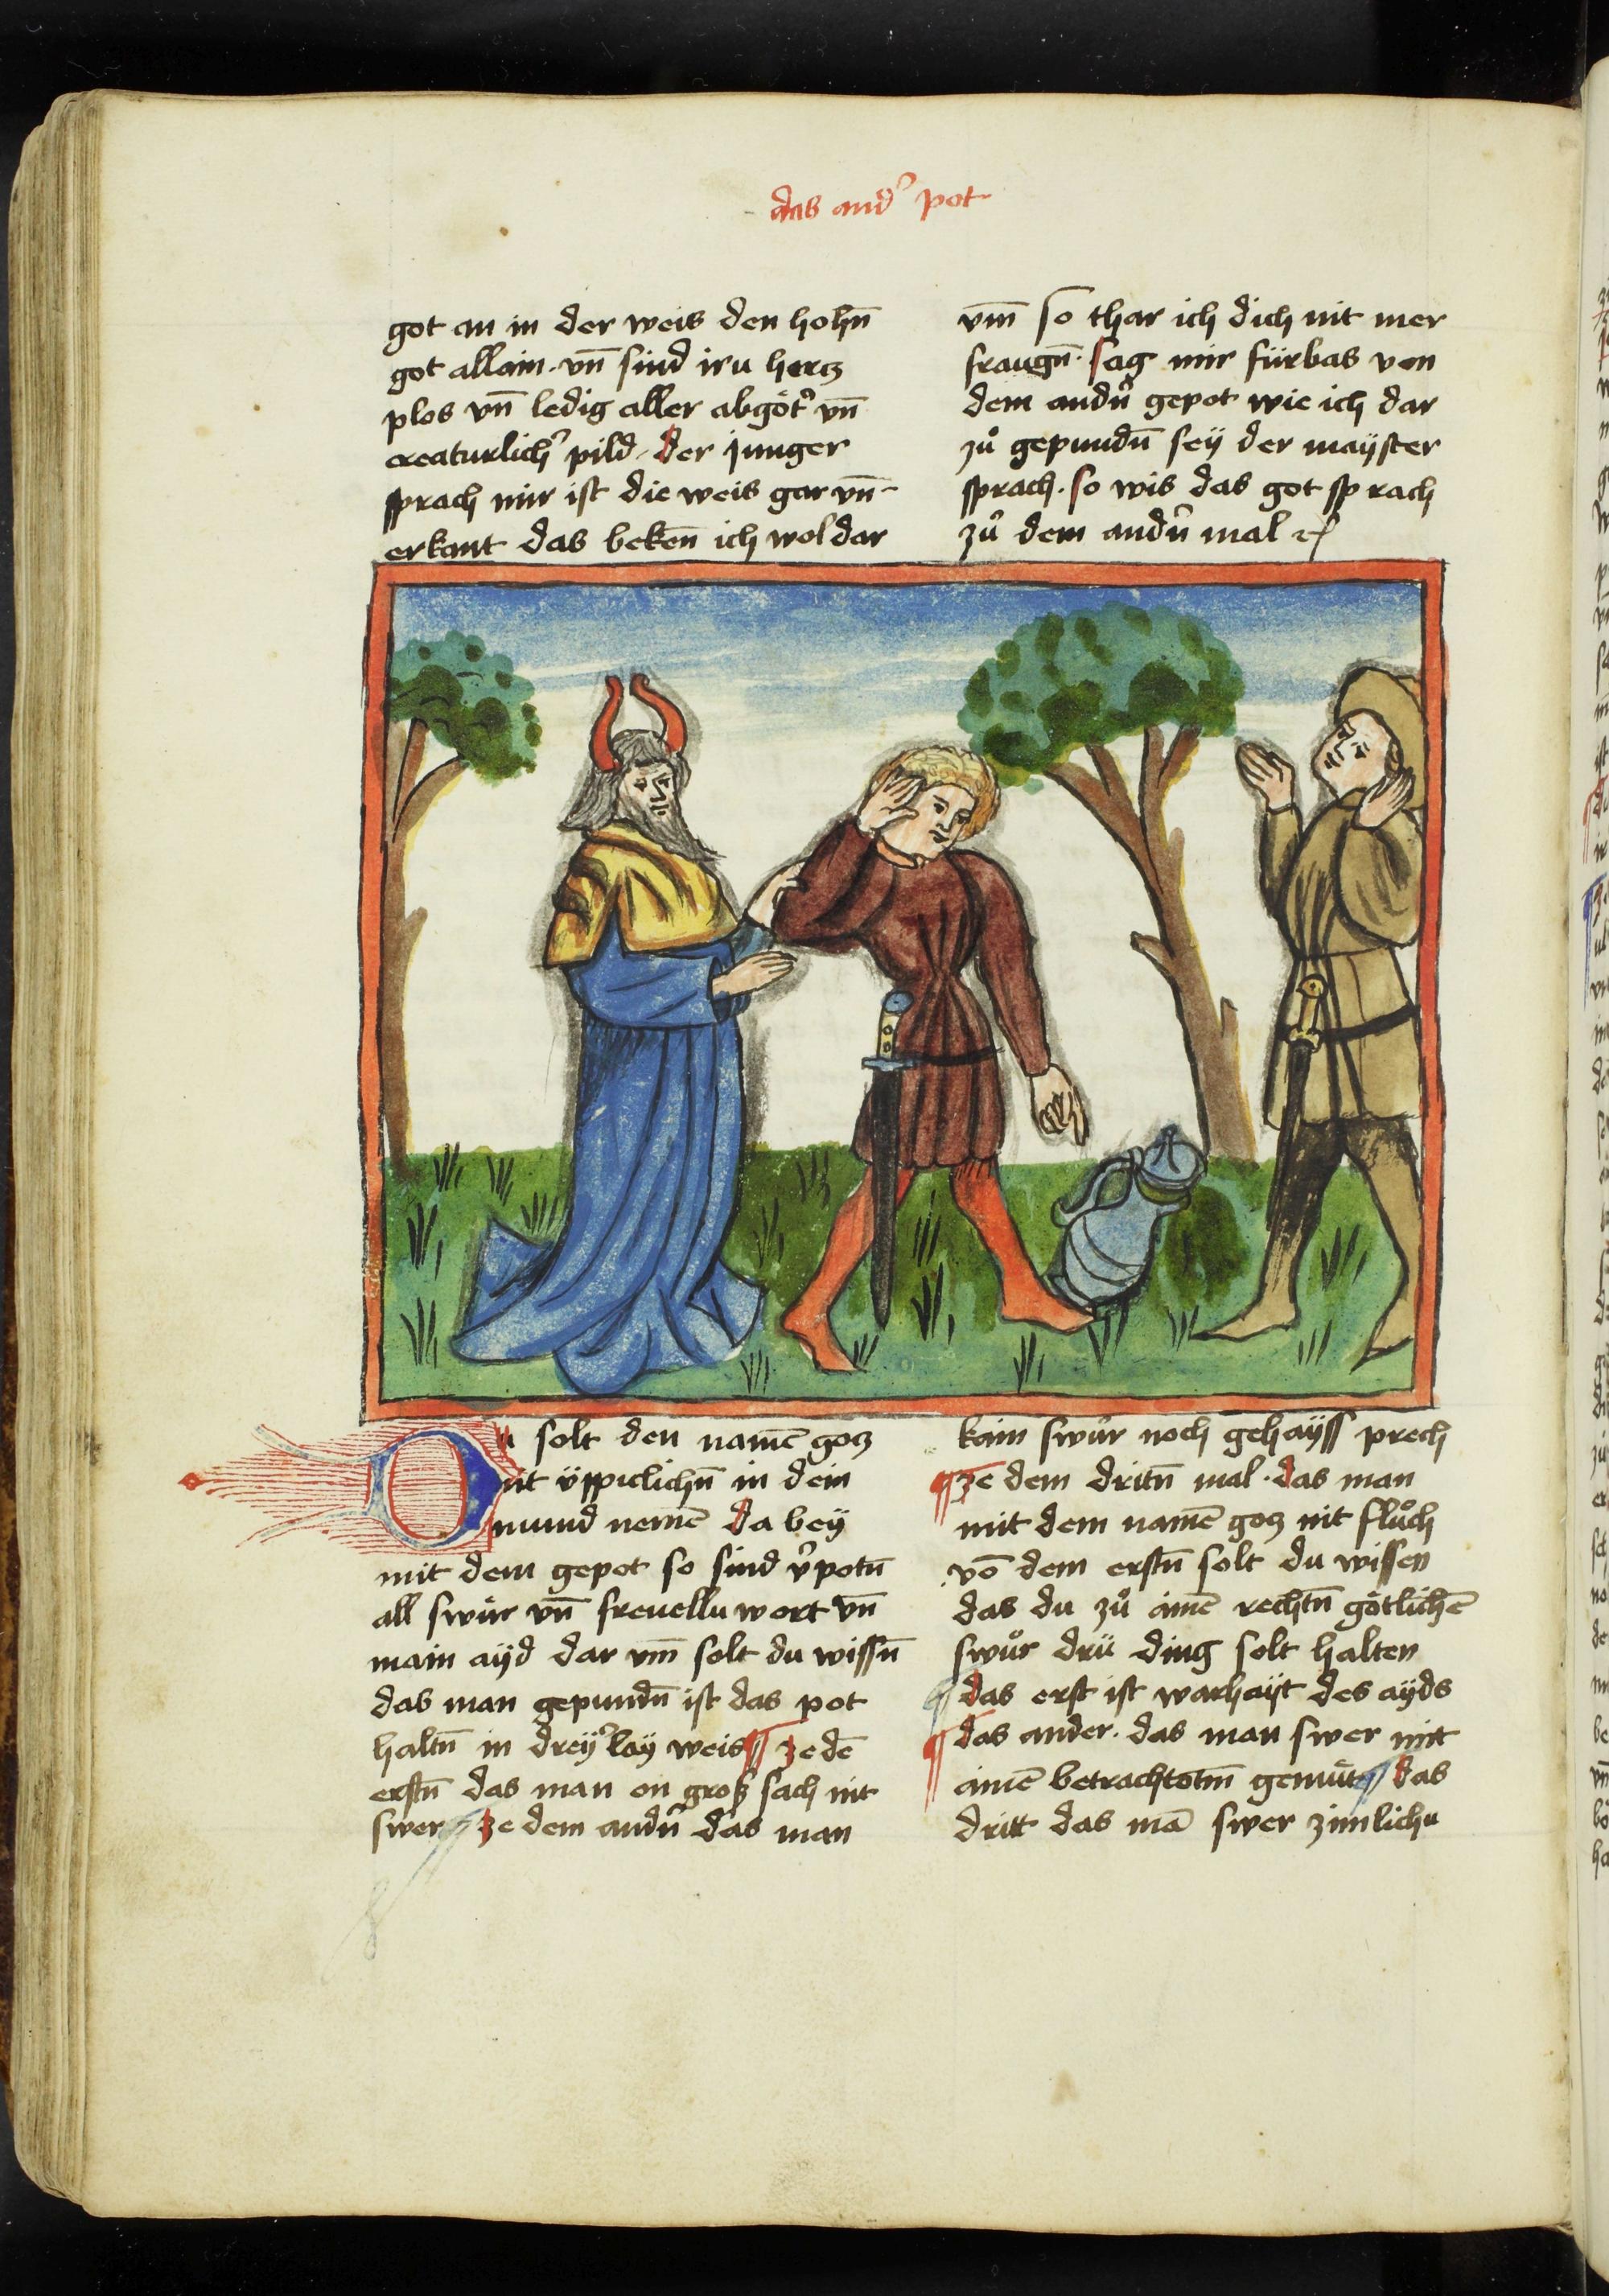 das andᷣ pot
got an in der weis den hohn̄
got allain · vn̄ sind iru hercz
plos vn̄ ledig aller abgötᷣ vn̄
creaturlichᷣ pild · der junger
sprach mir ist die weis gar vn̄
erkant das beken̄ ich wol dar
vm̄ so thar ich dich nit mer
fraugn̄ · sag mir fürbas von
dem andn̄ gepot wie ich dar
zů gepundn̄ seÿ der maÿster
sprach · so wis das got sprach
zů dem andn̄ mal
Du solt den namē gocz
nit üppiclichn̄ in dein
mund nemē da beÿ
mit dem gepot so sind vᷣpotn̄
all swür vn̄ freuellu wort vn̄
main aÿd dar vm̄ solt du wissn̄
das man gepundn̄ ist das pot
haltn̄ in dreÿᷣlaÿ weis ¶ ze dē
erstn̄ das man on groß sach nit
swer ¶ ze dem andn̄ das man
kain swůr noch gehaÿss prech
¶ ze dem dritn̄ mal · das man
mit dem namē gocz nit flůch
vō dem erstn̄ solt du wissen
das du zů aimē rechtn̄ götlichē
swůr drü ding solt halten
¶ das erst ist warhaÿt des aÿds
¶ das ander · das man swer mit
aimē betrachtotm̄ gemüt ¶ das
dritt das mā swer zimlichu